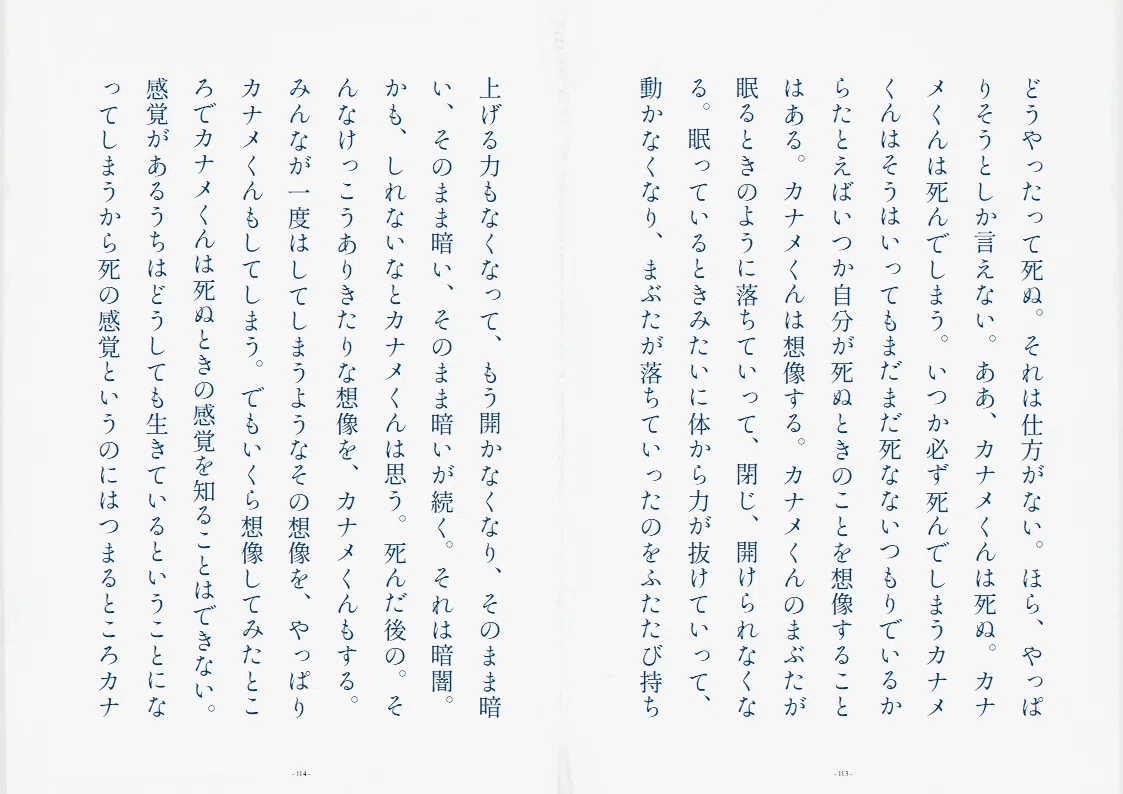 どうやったって死ぬ。それは仕方がない。ほら、やっぱ
りそうとしか言えない。ああ、カナメくんは死ぬ。カナ
メくんは死んでしまう。いつか必ず死んでしまうカナメ
くんはそうはいってもまだまだ死なないつもりでいるか
らたとえばいつか自分が死ぬときのことを想像すること
はある。カナメくんは想像する。カナメくんのまぶたが
眠るときのように落ちていって、閉じ、開けられなくな
る。眠っているときみたいに体から力が抜けていって、
動かなくなり、まぶたが落ちていったのをふたたび持ち
- 113 -
上げる力もなくなって、もう開かなくなり、そのまま暗
い、そのまま暗い、そのまま暗いが続く。それは暗闇。
かも、しれないなとカナメくんは思う。死んだ後の。そ
んなけっこうありきたりな想像を、カナメくんもする。
みんなが一度はしてしまうようなその想像を、やっぱり
カナメくんもしてしまう。でもいくら想像してみたとこ
ろでカナメくんは死ぬときの感覚を知ることはできない。
感覚があるうちはどうしても生きているということにな
ってしまうから死の感覚というのにはつまるところカナ
- 114 -